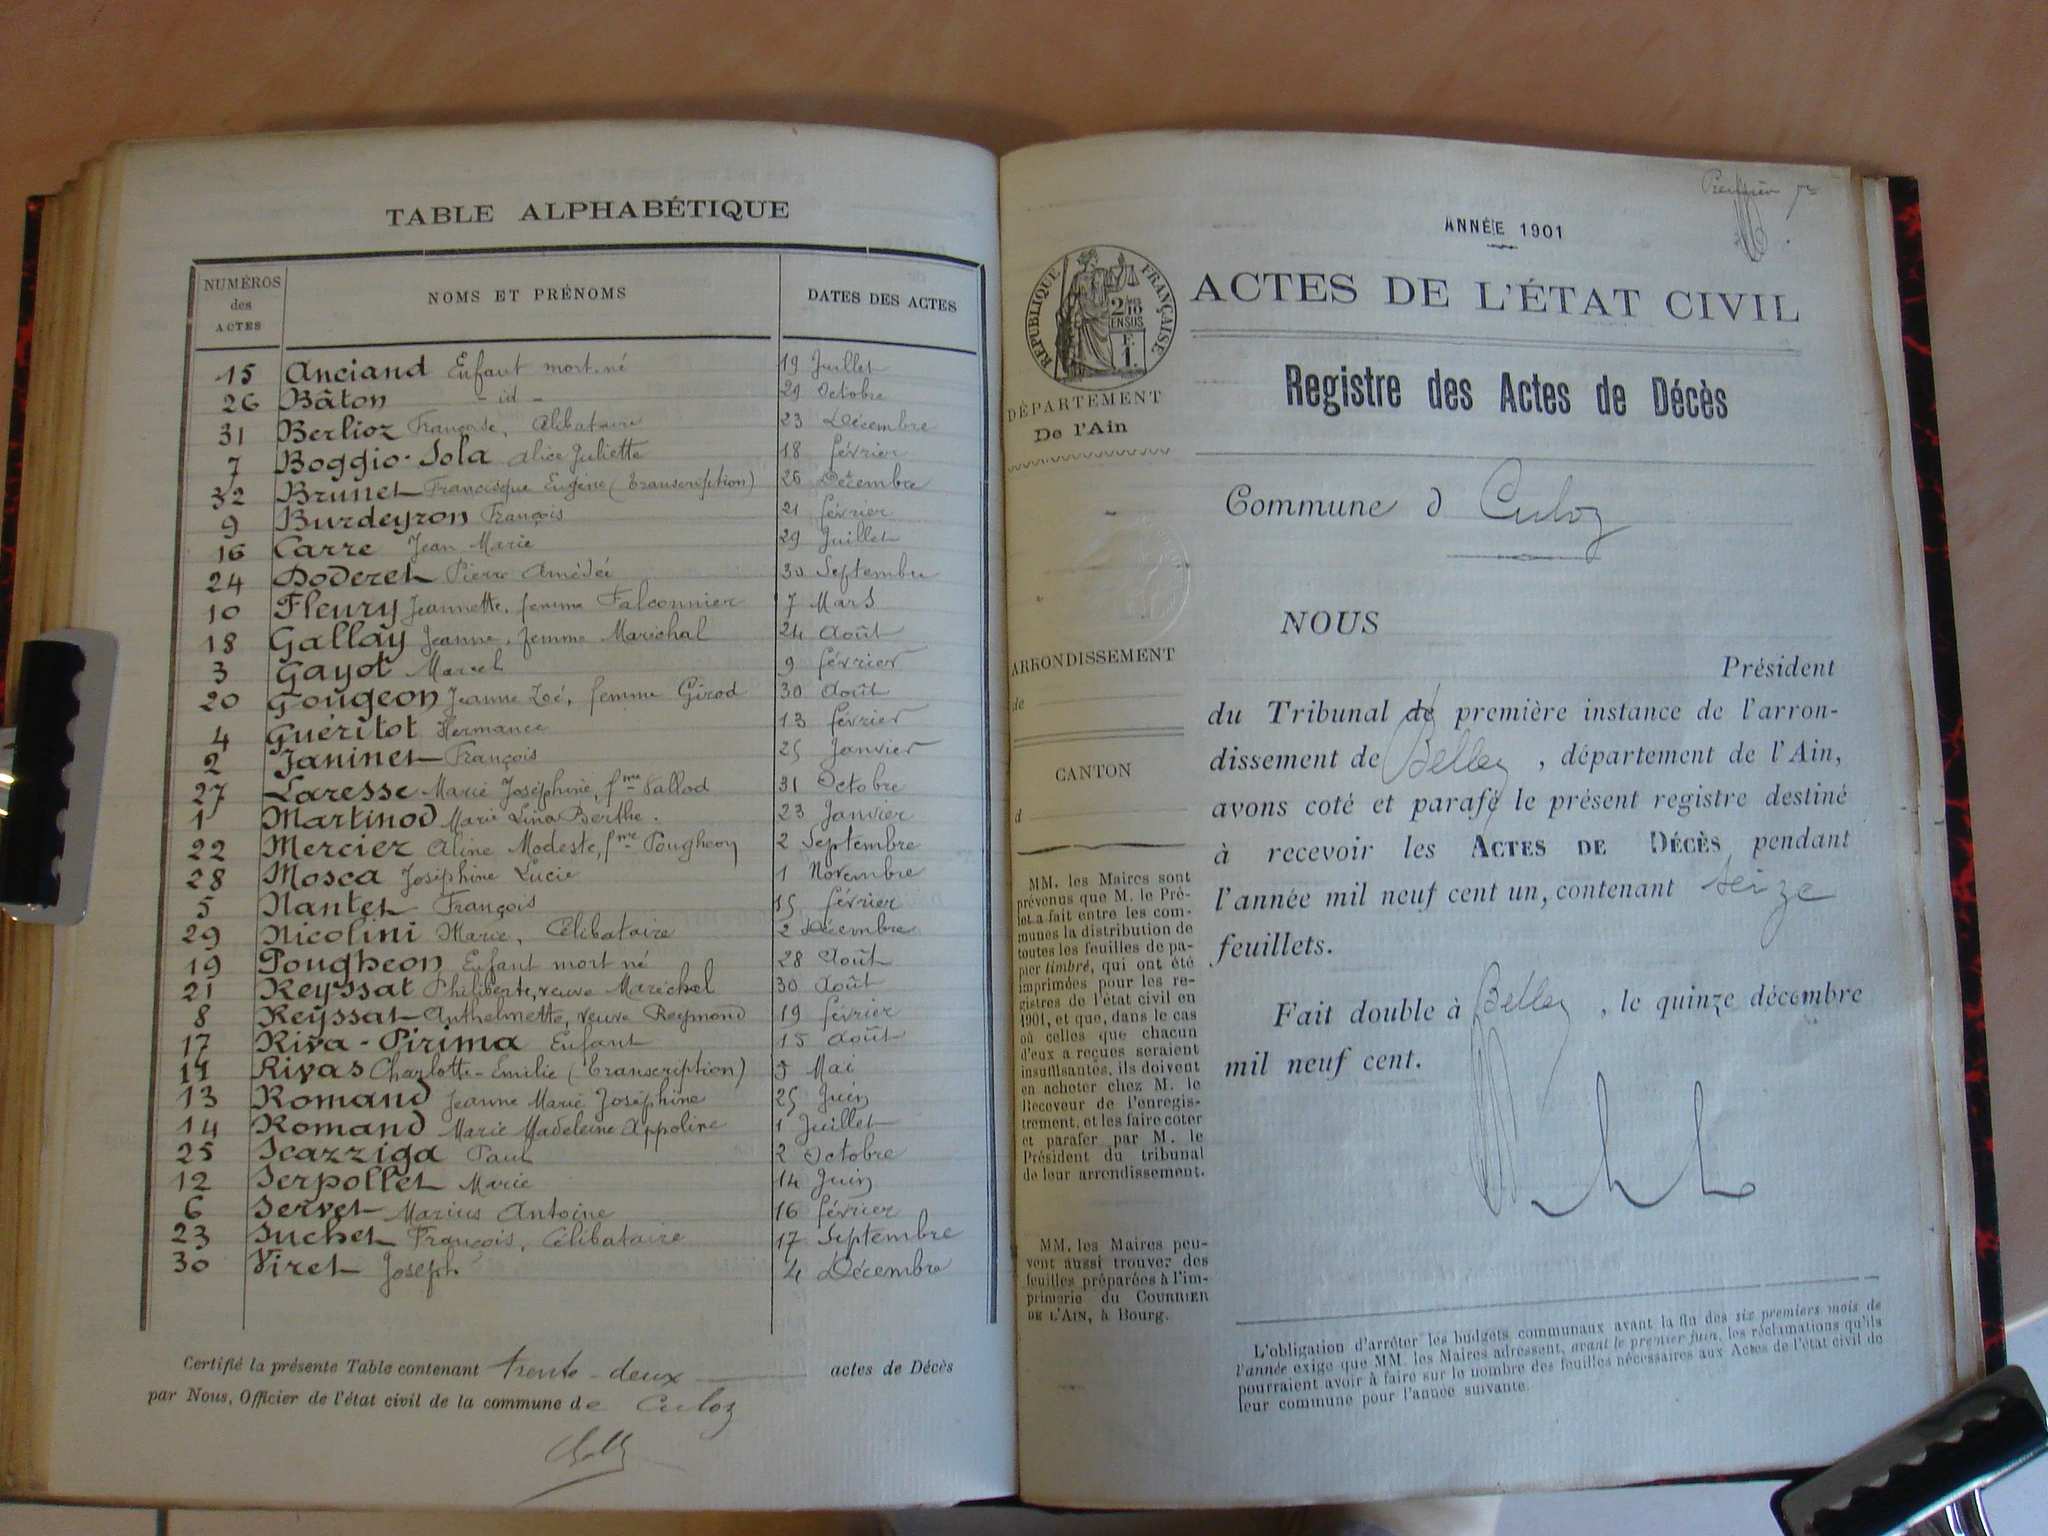 TABLE ALPHABÉTIQUE
NUMÉROS des ACTES NOMS ET PRÉNOMS DATES DES ACTES
15 Anciand Enfant mort-né 19 Juillet
26 Bâton - id - 29 Octobre
31 Berlioz Françoise, Célibataire 23 Décembre
7 Boggio-Sola Alice Juliette 18 février
32 Brunet Francisque Eugène (transcription) 26 Décembre
9 Burdeyron François 21 février
16 Carre Jean Marie 29 Juillet
24 Doderet Pierre Amédéé 30 Septembre
10 Fleury Jeannette, femme Falconnier 7 Mars
18 Gallay Jeanne, femme Maréchal 24 Août
3 Gayot Marcel 9 février
20 Gougeon Jeanne Zoé, femme Girod 30 Août
4 Guéritot Hermance 13 février
2 Janinet François 25 Janvier
27 Laresse Marie Joséphine, fme Vallod 31 Octobre
1 Martinod Marie Lina Berthe. 23 Janvier
22 Mercier Aline Modeste, fme Pougheon 2 Septembre
28 Mosca Joséphine Lucie 1 Novembre
5 Nantet François 15 février
29 Nicolini Marie, Célibataire 2 Décembre
19 Pougheon Enfant mort né 28 Août
21 Reyssat Philiberte, veuve Maréchal 30 Août
8 Reyssat Anthelmette, veuve Reymond 19 février
17 Riva-Pirima Enfant 15 Août
11 Rivas Charlotte-Emilie (transcription) 5 Mai
13 Romand Jeanne Marie Joséphine 25 Juin
14 Romand Marie Madeleine Appoline 1 Juillet
25 Scazziga Paul 2 Octobre
12 Serpollet Marie 14 Juin
6 Servet Marius Antoine 16 février
23 Suchet François, Célibataire 17 Septembre
30 Viret Joseph. 4 Décembre
Certifié la présente Table contenant trente-deux actes de Décès
par Nous, Officier de l'état civil de la commune de Culoz
Premier
ANNÉE 1901
RÉPUBLIQUE FRANÇAISE
2/10 EN SUS
F. 1.
ACTES DE L'ÉTAT CIVIL
Registre des Actes de Décès
DÉPARTEMENT
De l'Ain
Commune d Culoz
ARRONDISSEMENT
de
CANTON
d
MM. les Maires sont
prévenus que M. le Pré-
fet a fait entre les com-
munes la distribution de
toutes les feuilles de pa-
pier timbré, qui ont été
imprimées pour les re-
gistres de l'état civil en
1901, et que, dans le cas
où celles que chacun
d'eux a reçues seraient
insuffisantes, ils doivent
en acheter chez M. le
Receveur de l'enregis-
trement, et les faire coter
et parafer par M. le
Président du tribunal
de leur arrondissement.
MM. les Maires peu-
vent aussi trouver des
feuilles préparées à l'im-
primerie du COURRIER
DE L'AIN, à Bourg.
NOUS
Président
du Tribunal de première instance de l'arron-
dissement de Belley, département de l'Ain,
avons coté et parafé le présent registre destiné
à recevoir les ACTES DE DÉCÈS pendant
l'année mil neuf cent un, contenant seize
feuillets.
Fait double à Belley, le quinze décembre
mil neuf cent.
L'obligation d'arrêter les budgets communaux avant la fin des six premiers mois de
l'année exige que MM. les Maires adressent, avant le premier juin, les réclamations qu'ils
pourraient avoir à faire sur le nombre des feuilles nécessaires aux Actes de l'état civil de
leur commune pour l'année suivante.